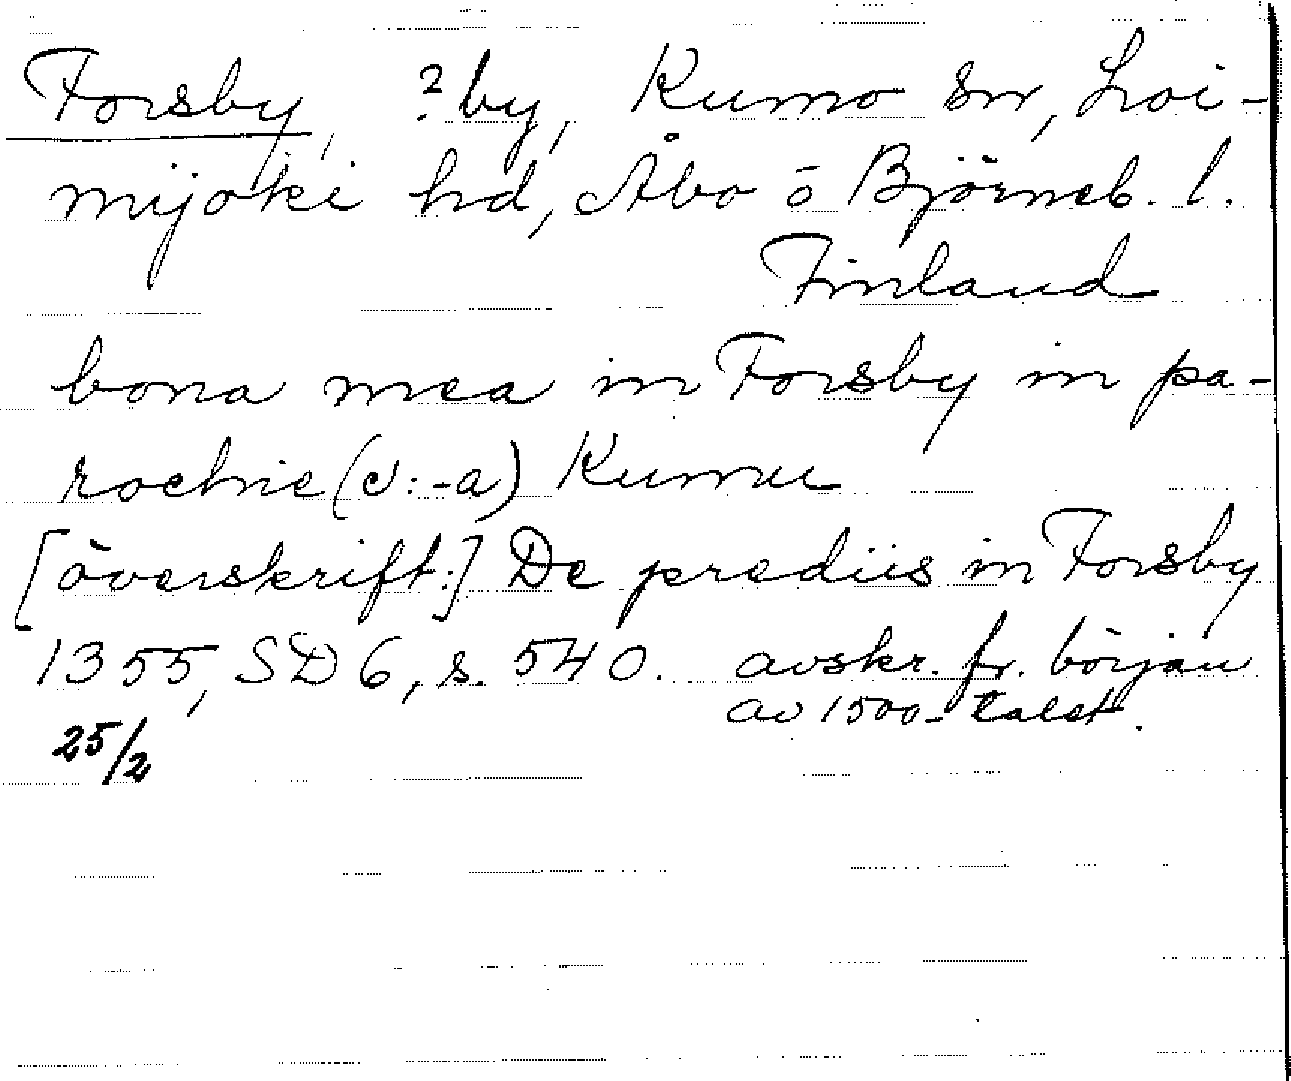 Forsby, ?by, Kumo sn, Loi-
mijoki hd, Åbo o Björneb. l.
Finland
bona mea in Forsby in pa-
rochie (ɔ:-a) Kumu
[överskrift:] De prediis in Forsby
1355, SD 6, s. 540. avskr. fr. början
av 1500-talet.
25/2